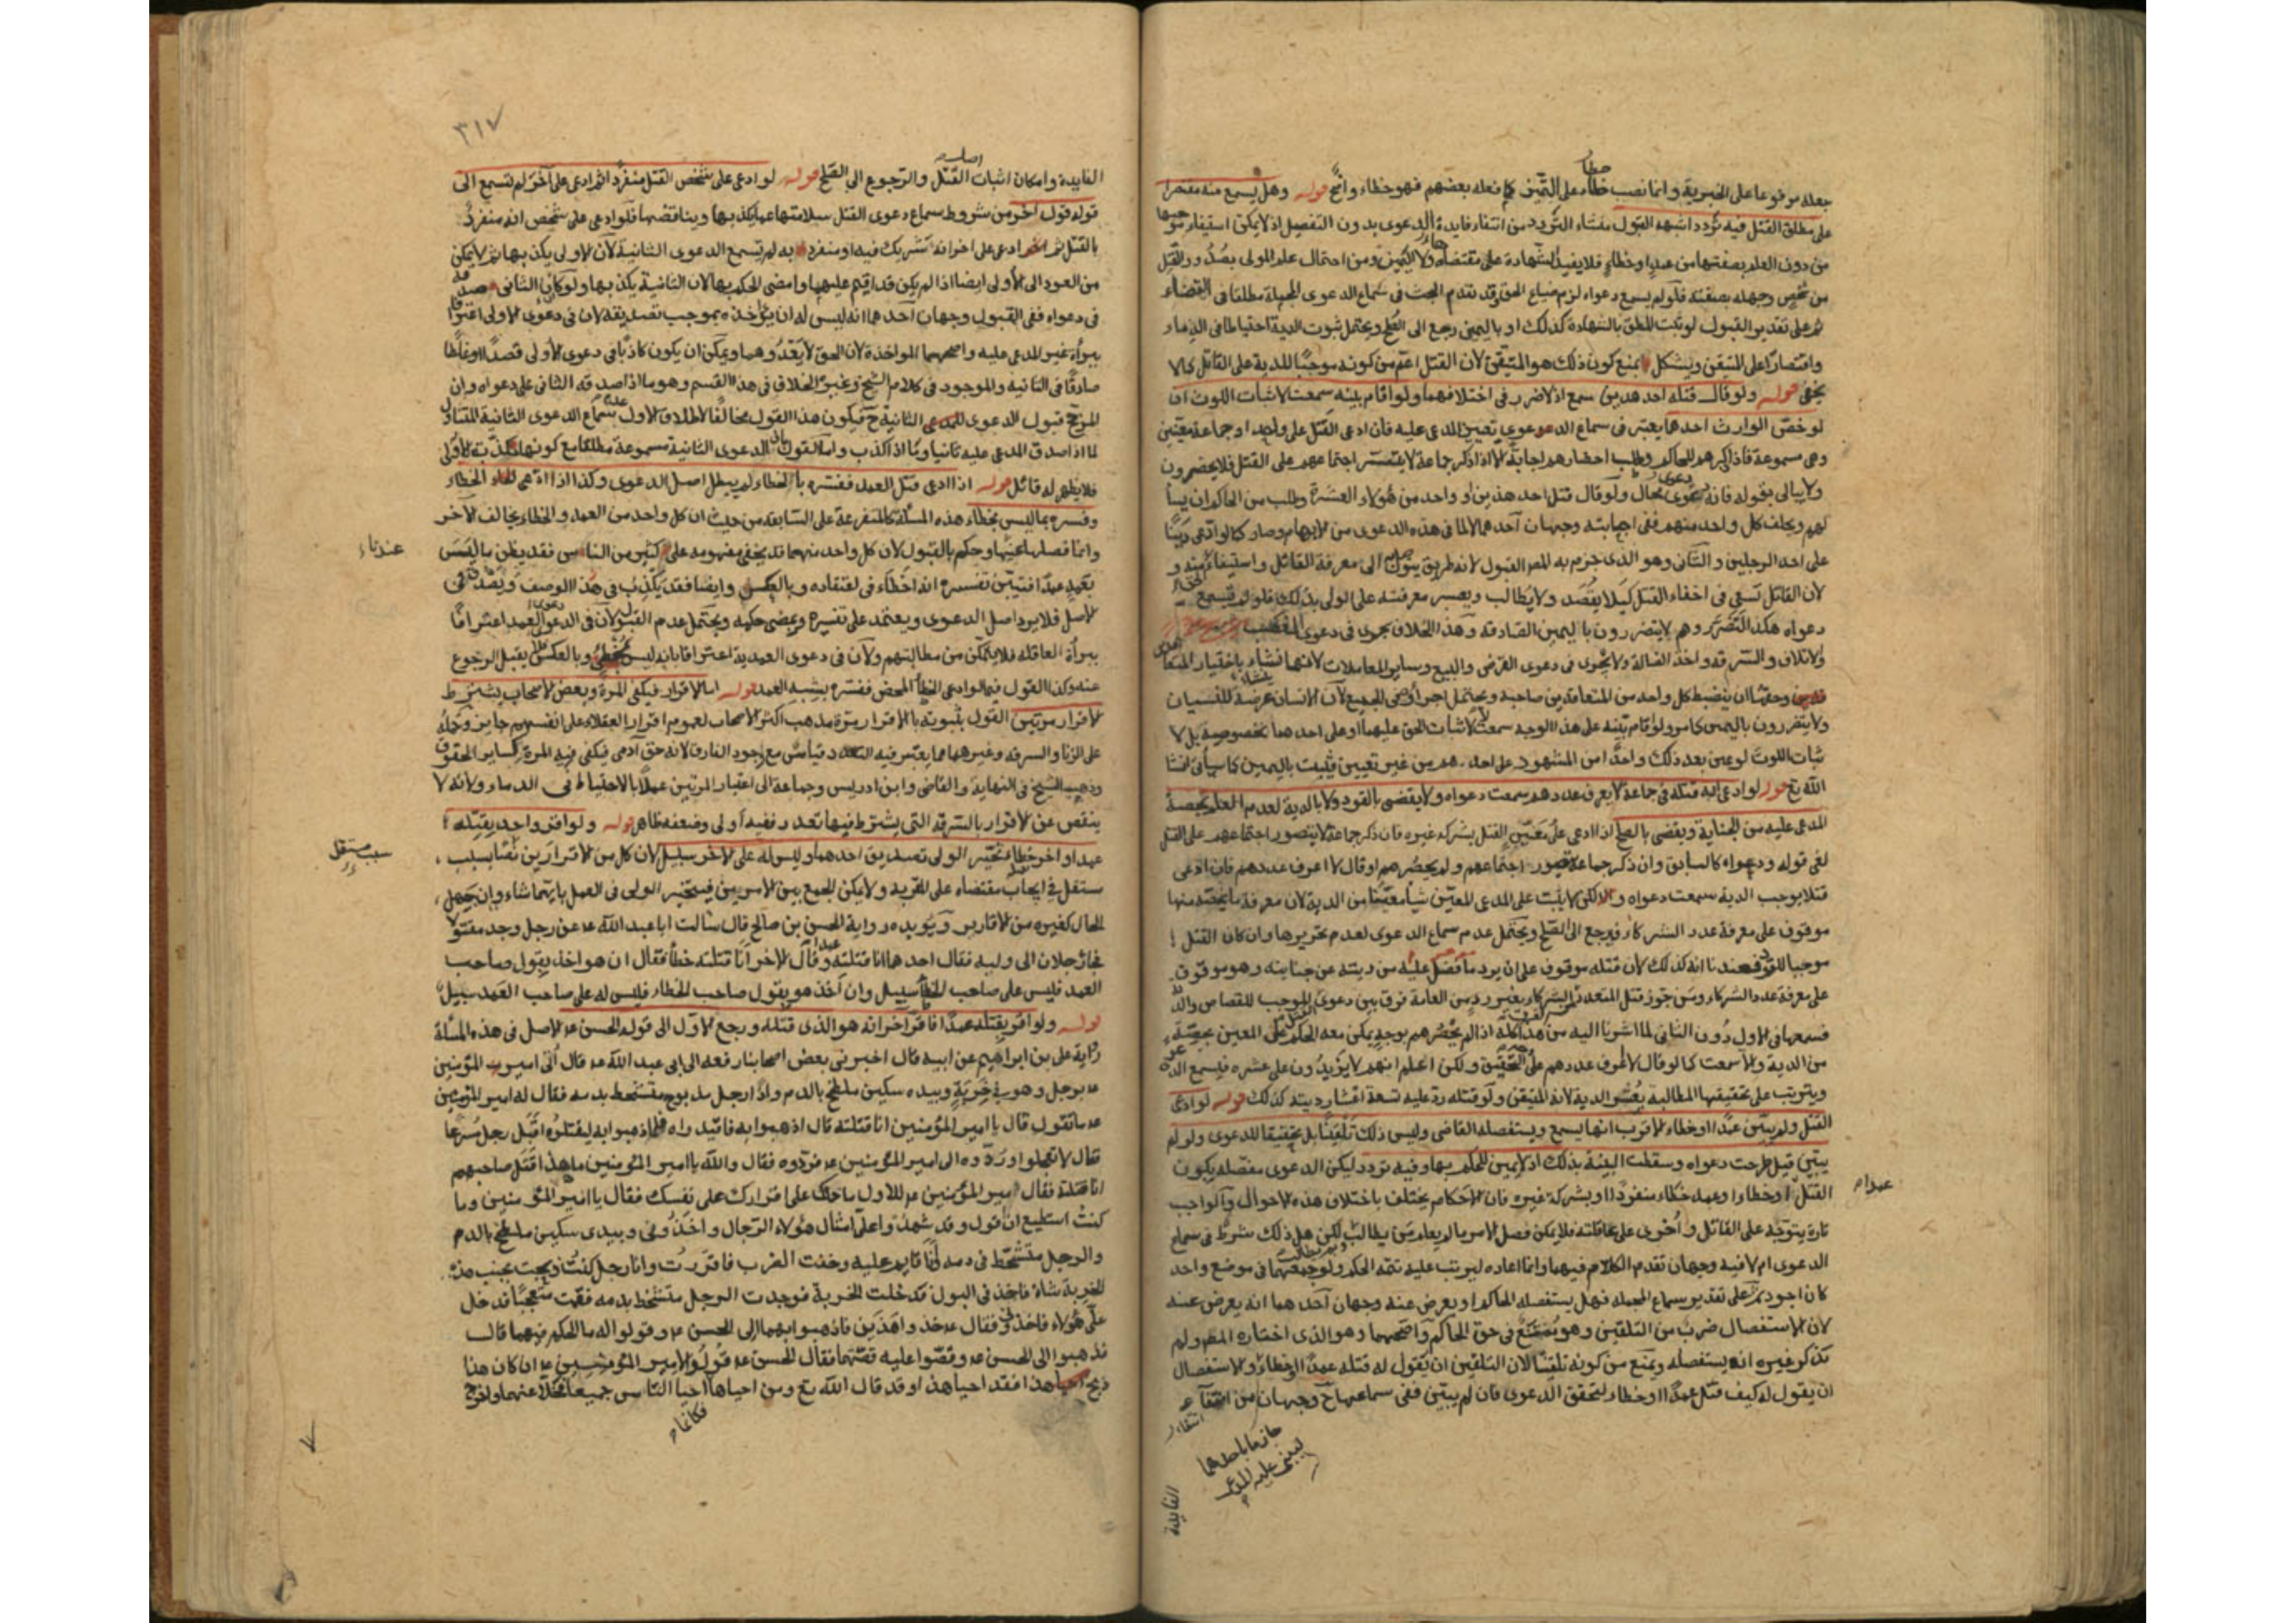 جعله مرفوعا على الخبرية وانما نصب خطأ على التميز كما فعله بعضهم فهو خطاء واضح قوله وهل يسمع منه مقتصرا
على مطلق القتل فيه تردد اشبهه القبول منشاء التردد من انتفاء فايدة الدعوى بدون التفصيل اذ لا يمكن استيفاء موجبها
من دون العلم بصفتها من عمد او خطاء فلا يفيد الشهادة على مقتضاه ولا اليمين ومن احتمال علم المولى بصدور القتل
من شخص وجهله بصفته فلو لم يسمع دعواه لزم ضياع الحق وقد تقدم البحث في سماع الدعوى المجملة مطلقا في القضاء
ثم على تقدير القبول لو ثبت المطلق بالشهادة كذلك او باليمين رجع الى الصلح ويحتمل ثبوت الدية احتياطا في الدماء
واقتصارا على المتيقن ويشكل بمنع كون ذلك هو المتيقن لان القتل اعم من كونه موجبا للدية على القاتل كما لا
يخفى قوله ولو قال قتله احد هذين سمع اذ لا ضرر في احلافهما ولو اقام بينة سمعت لاثبات اللوث ان
لو خص الوارث احدهما يعتبر في سماع الدعوى تعيين المدعى عليه فان ادعى القتل على واحد او جماعة معينين
وهي مسموعة فاذا ذكرهم للحاكم وطلب احضارهم اجابه الا اذا ذكر جماعة لا يتصور اجتماعهم على القتل فلا يحضرون
ولا يبالى بقوله فانه دعوى محال ولو قال قتل احد هذين او واحد من هؤلاء العشرة وطلب من الحاكم ان يسأ
لهم ويحلف كل واحد منهم ففي اجابته وجهان احدهما لا لما في هذه الدعوى من الابهام وصار كما لو ادعى دينا
على احد الرجلين والثاني وهو الذي جزم به المص القبول لانه طريق يتوصل الى معرفة القاتل واستيفاء الحق منه و
لان القاتل يسعى في اخفاء القتل كيلا يقصد ولا يطالب ويعسر معرفته على الولي بذلك فلو لم تسمع
دعواه هكذا لتضرر وهم لا يتضررون باليمين الصادقة وهذا الخلاف يجرى في دعوى الغصب
والاتلاف والسرقة واخذ الضالة ولا يجرى في دعوى القرض والبيع وساير المعاملات لانها تنشاء باختيار المتعا
قدين وحقها ان يضبط كل واحد من المتعاقدين صاحبه ويحتمل اجراؤه في الجميع لان الانسان عرضة للنسيان
ولا يتضررون باليمين كما مر ولو اقام بينة على هذا الوجه سمعت لا لاثبات الحق عليهما او على احدهما بخصوصه بل لا
ثبات اللوث لو عين بعد ذلك واحدا من المشهود على احدهم من غير تعيين فيثبت باليمين كما سيأتي انشا
الله تع قوله لو ادعى انه قتله في جماعة لا يعرف عددهم سمعت دعواه ولا يقضى بالقود ولا بالدية لعدم العلم بحصة
المدعى عليه من الجناية ويقضى بالصلح اذا ادعى على معين القتل بشركة غيره فان ذكر جماعة لا يتصور اجتماعهم على القتل
لغى قوله ودعواه كالسابق وان ذكر جماعة يتصور اجتماعهم ولم يحصرهم او قال لا اعرف عددهم فان ادعى
قتلا يوجب الدية سمعت دعواه ولكن لا يثبت على المدعى المعين شيأ معينا من الدية لان معرفة ما يخصه منها
موقوف على معرفة عدد الشركاء فيرجع الى الصلح ويحتمل عدم سماع الدعوى لعدم تحريرها وان كان القتل
موجبا للقود فعندنا انه كذلك لان قتله موقوف على ان يرد ما فضل عليه من ديته عن جنايته وهو موقوف
على معرفة عدد الشركاء ومن جوز قتل المتعدد الشركاء بغير رد من العامة فرق بين دعوى الموجب للقصاص والدية
فسمعها في الاول دون الثاني لما اشرنا اليه من هذا كله اذا لم يحصرهم بوجه يمكن معه الحكم على المعين بحصته
من الدية والا سمعت كما لو قال لا اعرف عددهم على التحقيق ولكن اعلم انهم لا يزيدون على عشرة فيسمع الدعوى
ويترتب على تحقيقها المطالبة بعشر الدية لانه المتيقن ولو قتله رد عليه تسعة اعشار ديته كذلك قوله لو ادعى
القتل ولم يبين عمدا او خطاء الاقرب انها يسمع ويستفصله القاضي وليس ذلك تلقينا بل تحقيقا للدعوى ولو لم
يبين قيل طرحت دعواه وسقطت البينة بذلك اذ لا يمين للحكم بها وفيه تردد ليكن الدعوى مفصلة بكون
القتل او خطاء او عمد خطاء منفردا او بشركة غيره فان الاحكام يختلف باختلاف هذه الاحوال والواجب
عمدا
تارة يتوجه على القاتل واخرى على عاقلته فلا يمكن فصل الامر ما لم يعلم من يطالب لكن هل ذلك شرط في سماع
الدعوى ام لا فيه وجهان تقدم الكلام فيهما وانما اعاده ليرتب عليه تتمة الحكم ولو جمعهما في موضع واحد
كان اجود ثم على تقدير سماع المجملة فهل يستفصله الحاكم او يعرض عنه وجهان احدهما انه يعرض عنه
لان الاستفصال ضرب من التلقين وهو ممتنع في حق الحاكم واصحهما وهو الذي اختاره المص ولم
يذكر غيره انه يستفصله ويمنع من كونه تلقينا لان التلقين ان يقول له قتله عمدا او خطاء والاستفصال
ان يقول له كيف قتل عمدا او خطاء لتحقق الدعوى فان لم يبين ففي سماعها ح وجهان من انتفاء
الفايدة
٣١٧
الفايدة وامكان اثبات اصل القتل والرجوع الى الصلح قوله لو ادعى على شخص القتل منفردا ثم ادعى على آخر لم تسمع الى
قوله قول اخر من شروط سماع دعوى القتل سلامتها عما يكذبها ويناقضها فلو ادعى على شخص انه منفرد
بالقتل ثم ادعى على اخر انه شريك فيه او منفرد به لم تسمع الدعوى الثانية لان الاولى يكذبها ثم لا يمكن
من العود الى الاولى ايضا اذا لم يكن قد اقيم عليها وامضى الحكم بها لان الثانية يكذبها ولو كان الثاني صدقه
في دعواه ففي القبول وجهان احدهما انه ليس له ان يؤاخذه بموجب تصديقه لان في دعوى الاولى اعترافا
ببرأة غير المدعى عليه واصحهما المواخذة لان الحق لا يعدوهما ويمكن ان يكون كاذبا في دعوى الاولى قصدا او غلطا
صادقا في الثانية والموجود في كلام الشيخ وغيره الخلاف في هذا القسم وهو ما اذا صدقه الثاني على دعواه وان
المرجح قبول الدعوى الثانية ح فيكون هذا القول مخالفا لاطلاق الاول عدم سماع الدعوى الثانية المتناول
لما اذا صدق المدعى عليه ثانيا وما اذا كذب واما القول بان الدعوى الثانية مسموعة مطلقا مع كونها مكذبة للاولى
فلا يظهر له قائل قوله اذا ادعى قتل العمد ففسره بالخطاء لم يبطل اصل الدعوى وكذا اذا ادعى الخطاء
وفسره بما ليس بخطاء هذه المسألة كالمتفرعة على السابقة من حيث ان كل واحد من العمد والخطاء يخالف الاخر
وانما فصلها عنها وحكم بالقبول لان كل واحد منهما قد يخفى مفهومه على كثير من الناس فقد يظن ما ليس
عندنا
بعمد عمدا فتبين بتفسيره انه اخطاء في اعتقاده وبالعكس وايضا فقد يكذب في هذا الوصف ويصدق في
الاصل فلا يرد اصل الدعوى ويعتمد على تفسيره ويمضى حكمه ويحتمل عدم القبول لان في دعوى العمد اعترافا
ببرأة العاقلة فلا يتمكن من مطالبتهم ولان في دعوى العمدية اعترافا بانه ليس بخطئ وبالعكس يقبل الرجوع
عنه وكذا القول فيما لو ادعى الخطأ المحض ففسره بشبه العمد قوله اما الاقرار فيكفى المرة وبعض الاصحاب يشترط
الاقرار مرتين القول بثبوته بالاقرار مرة مذهب اكثر الاصحاب لعموم اقرار العقلاء على انفسهم جايز وحمله
على الزنا والسرقة وغيرهما مما يعتبر فيه التعدد قياس مع وجود الفارق لانه حق آدمي فيكفى فيه المرة كساير الحقوق
وذهب الشيخ في النهاية والقاضي وابن ادريس وجماعة الى اعتبار المرتين عملا بالاحتياط في الدماء ولانه لا
ينقص عن الاقرار بالسرقة التي يشترط فيها تعدد ففيه اولى وضعفه ظاهر قوله ولو اقر واحد بقتله
عمدا واخر خطاء تخير الولي تصديق احدهما وليس له على الاخر سبيل لان كل من الاقرارين نصا بسبب
سبب مستقل
مستقل في ايجاب مقتضاه على المقر به ولا يمكن الجمع بين الامرين فيتخير الولي في العمل بايهما شاء وان جهل
الحال كغيره من الاقارير ويؤيده رواية الحسن بن صالح قال سألت ابا عبد الله ع عن رجل وجد مقتولا
فجاء رجلان الى وليه فقال احدهما انا قتلته عمدا وقال الاخر انا قتلته خطأ فقال ان هو اخذ بقول صاحب
العمد فليس على صاحب الخطأ سبيل وان اخذ هو بقول صاحب الخطاء فليس له على صاحب العمد سبيل
قوله ولو اقر بقتله عمدا فاقر آخر انه هو الذي قتله ورجع الاول الى قوله الحسن ع الاصل في هذه المسألة
رواية علي بن ابراهيم عن ابيه قال اخبرني بعض اصحابنا رفعه الى ابي عبد الله ع قال اتي امير المؤمنين
ع برجل وهو في خربة وبيده سكين ملطخ بالدم واذا رجل مذبوح متشحط بدمه فقال له امير المؤمنين
ع ما تقول قال يا امير المؤمنين انا قتلته قال اذهبوا به فاقيدواه فلما ذهبوا به ليقتلوه اقبل رجل مسرعا
فقال لا تعجلوا وردوه الى امير المؤمنين ع فردوه فقال والله يا امير المؤمنين ما هذا قتل صاحبهم
انا قتلته فقال امير المؤمنين ع للاول ما حملك على اقرارك على نفسك فقال يا امير المؤمنين وما
كنت استطيع ان اقول وقد شهد علي امثال هؤلاء الرجال واخذوني وبيدي سكين ملطخ بالدم
والرجل متشحط في دمه وانا قايم عليه وخفت الضرب فاقررت وانا رجل كنت ذبحت بجنب هذه
الخربة شاة فاخذني البول فدخلت الخربة فوجدت الرجل متشحط بدمه فقمت متعجبا فدخل
علي هؤلاء فاخذوني فقال ع خذوا هذين فاذهبوا بهما الى الحسن ع وقولوا له ما الحكم فيهما قال
فذهبوا الى الحسن ع وقصوا عليه قصتهما فقال الحسن ع قولوا لامير المؤمنين ع ان كان هذا
ذبح هذا فقد احيا هذا وقد قال الله تع ومن احياها احيا الناس جميعا فخلا عنهما واخرج
فكانما